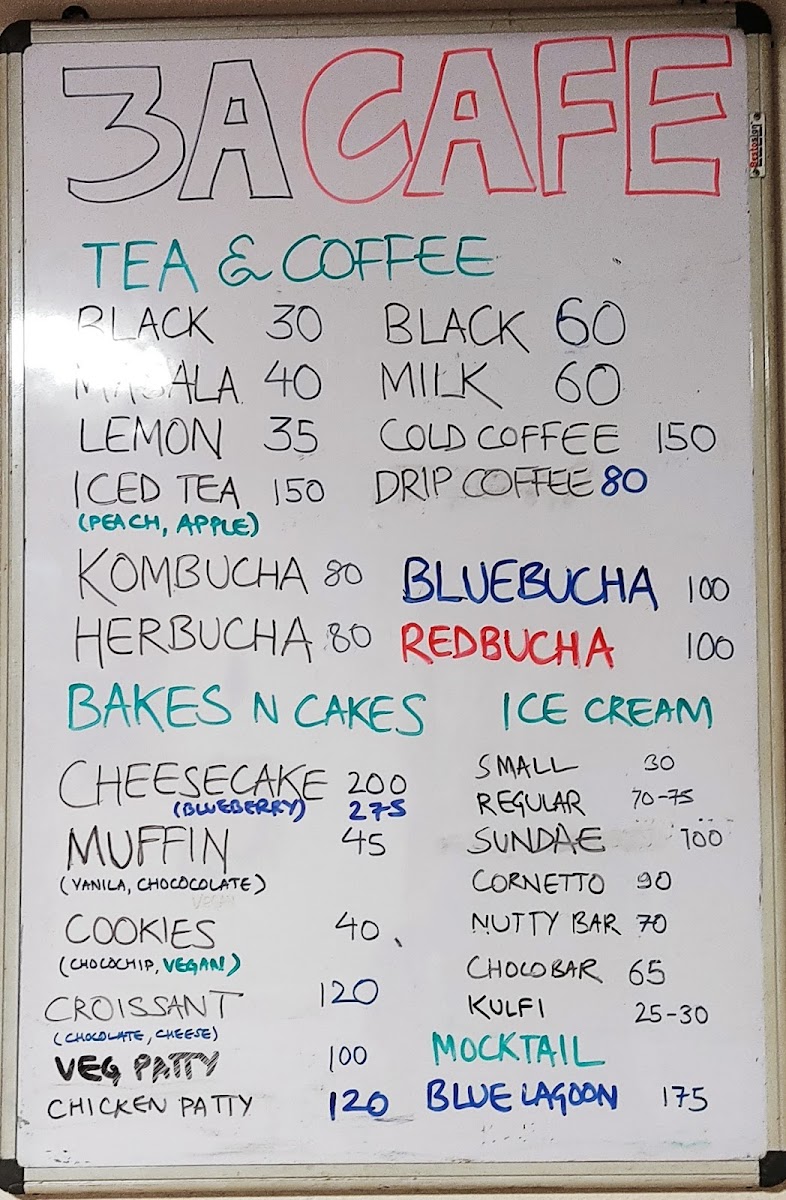 3A CAFE
TEA & COFFEE
BLACK 30 BLACK 60
MASALA 40 MILK 60
LEMON 35 COLD COFFEE 150
ICED TEA 150 DRIP COFFEE 80
(PEACH, APPLE)
KOMBUCHA 80 BLUEBUCHA 100
HERBUCHA 80 REDBUCHA 100
BAKES N CAKES
CHEESECAKE 200
(BLUEBERRY) 275
MUFFIN 45
(VANILA, CHOCOCOLATE)
COOKIES 40
(CHOCOCHIP, VEGAN!)
CROISSANT 120
(CHOCOLATE, CHEESE)
VEG PATTY 100
CHICKEN PATTY 120
ICE CREAM
SMALL 30
REGULAR 70-75
SUNDAE 100
CORNETTO 90
NUTTY BAR 70
CHOCOBAR 65
KULFI 25-30
MOCKTAIL
BLUE LAGOON 175